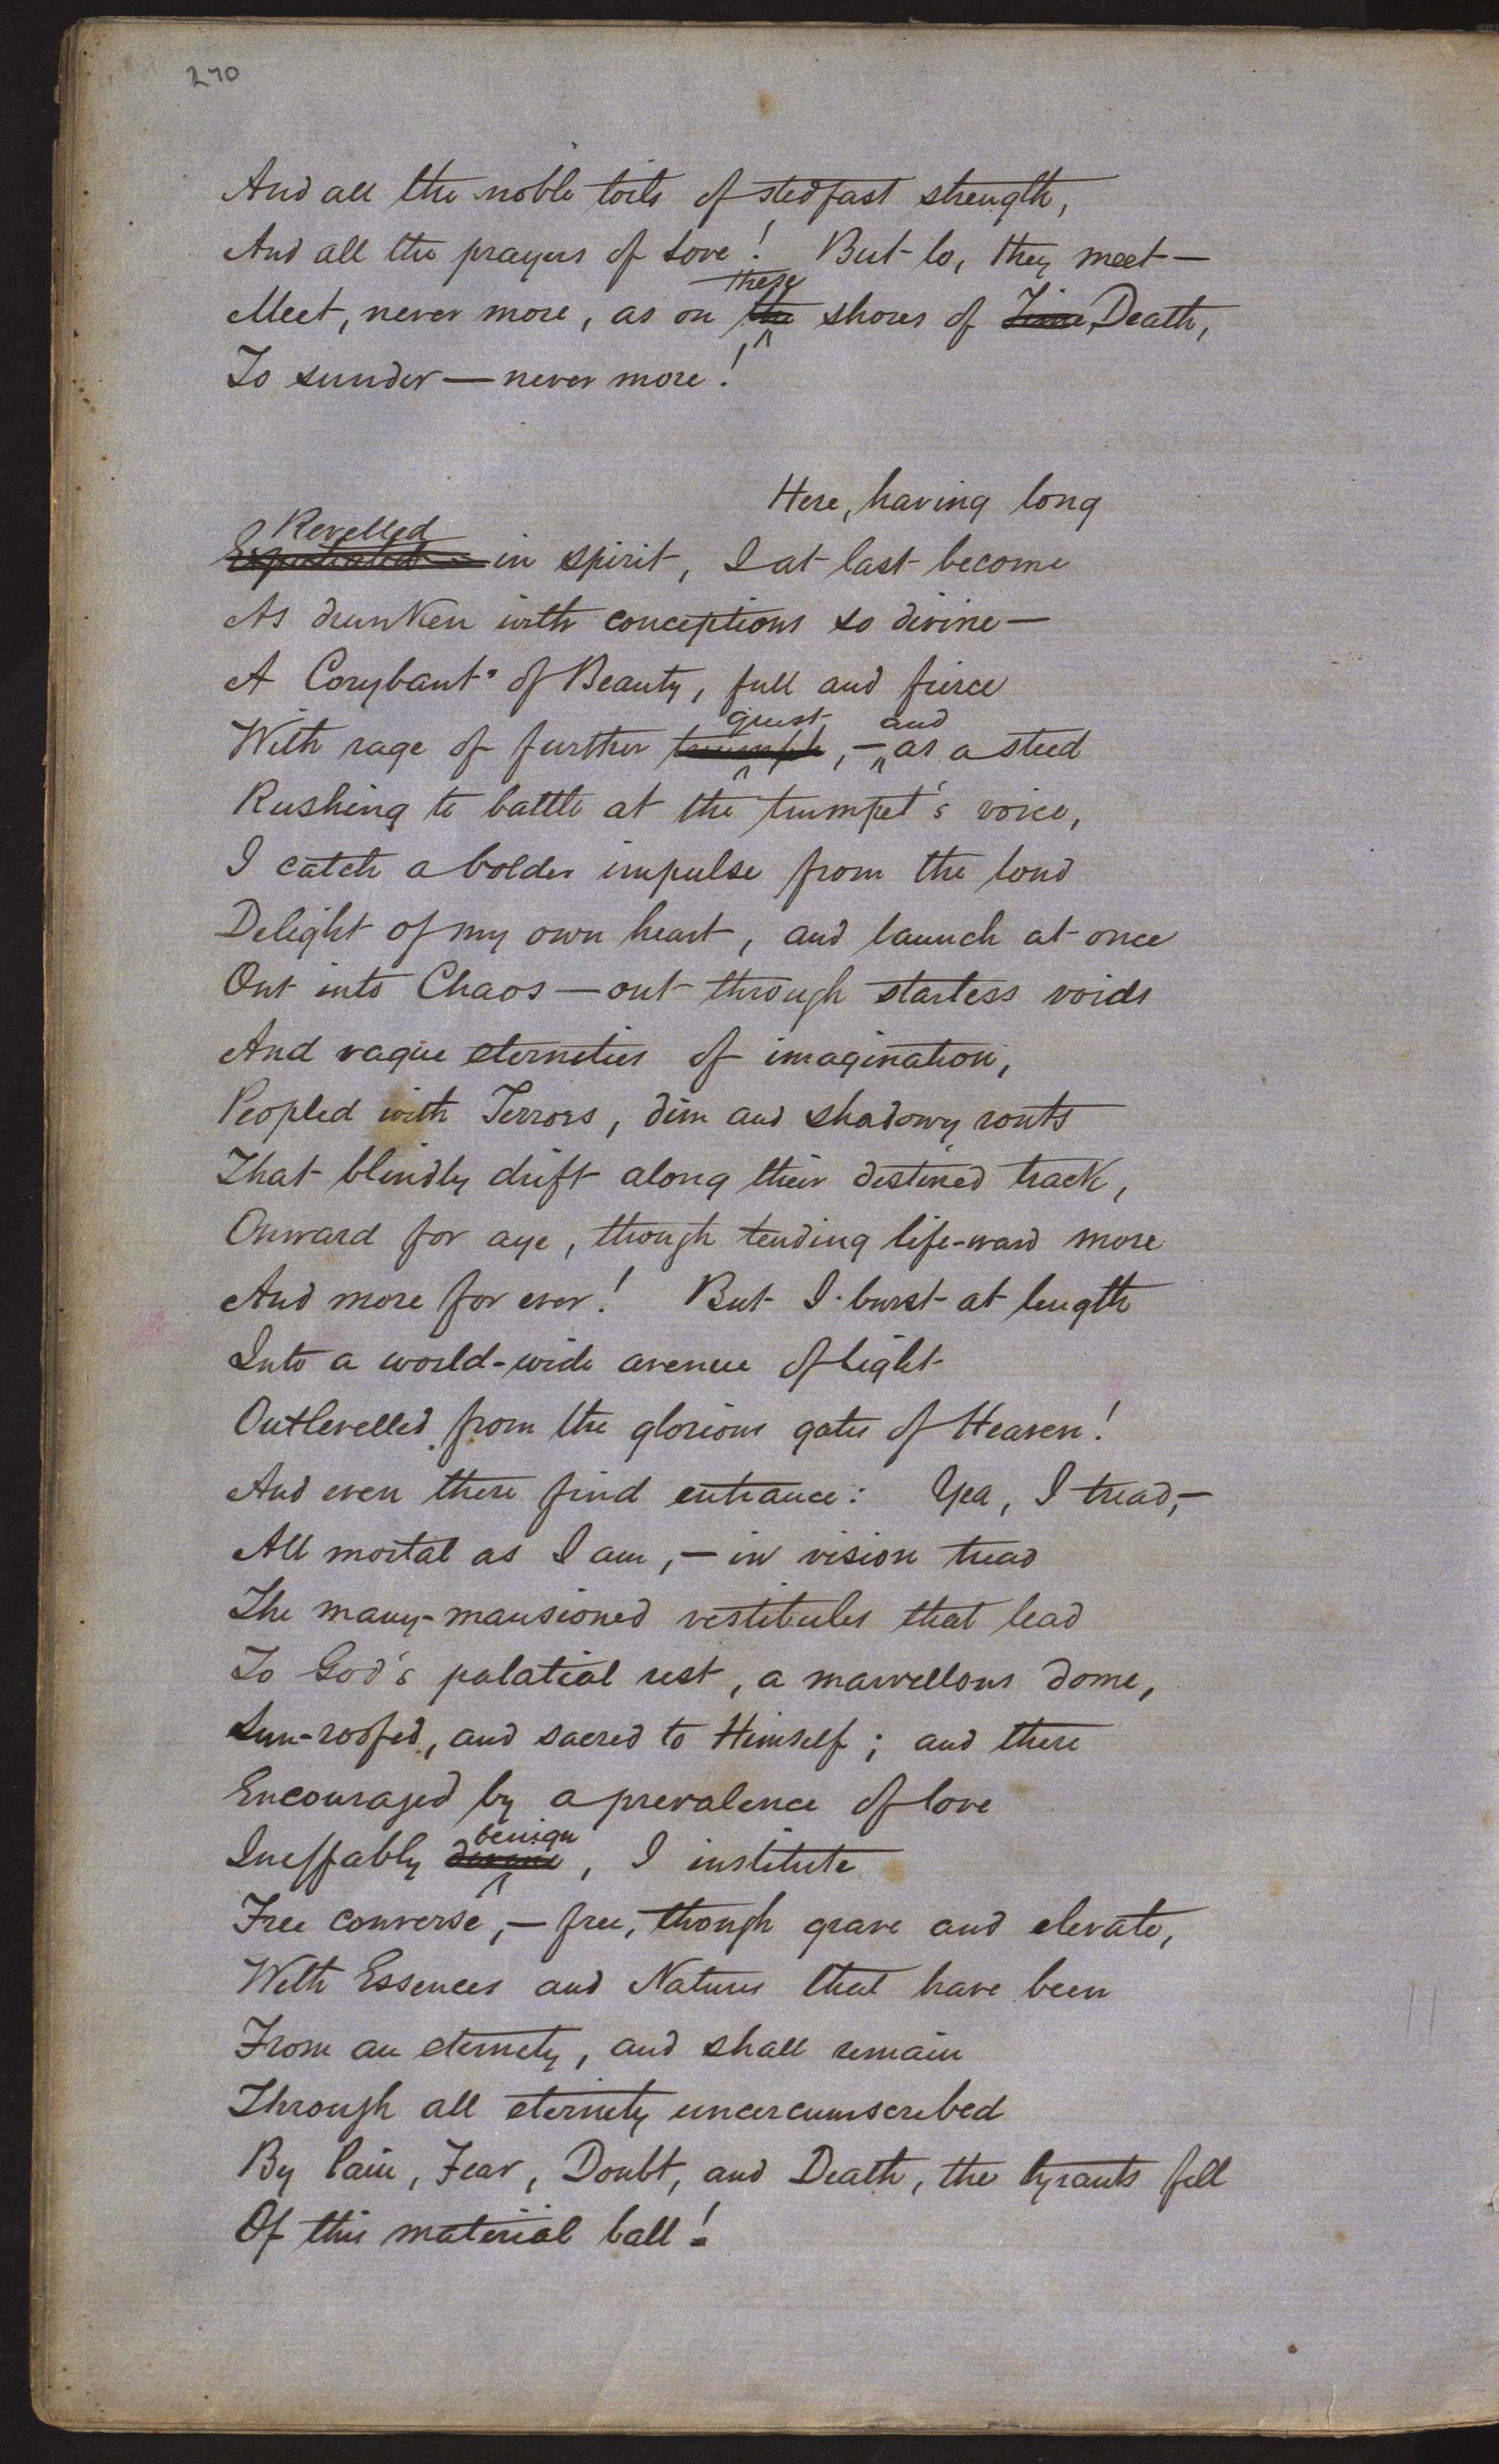 270
And all the noble toils of stedfast strength,
And all the prayers of Love! But lo, they meet—
these
Meet, never more, as on the shores of Time Death,
To sunder — never more!
Here, having long
Revelled
Expatiated in spirit, I at last become
As drunken with conceptions so divine—
A Corybant of Beauty, full and fierce
quest and
With rage of further triumph, — as a steed
Rushing to battle at the trumpet's voice,
I catch a bolder impulse from the loud
Delight of my own heart, and launch at once
Out into Chaos — out through starless voids
And vague eternities of imagination,
Peopled with Terrors, dim and shadowy routs
That blindly drift along their destined track,
Onward for aye, though tending life-ward more
And more for ever! But I burst at length
Into a world-wide avenue of light
Outlevelled from the glorious gates of Heaven!
And even there find entrance: Yea, I tread,—
All mortal as I am, — in vision tread
The many-mansioned vestibules that lead
To God's palatial rest, a marvellous dome,
Sun-roofed, and sacred to Himself; and there
Encouraged by a prevalence of love
benign
Ineffably divine, I institute
Free converse, — free, though grave and elevate,
With Essences and Natures that have been
From an eternity, and shall remain
Through all eternity uncircumscribed
By Pain, Fear, Doubt, and Death, the tyrants fell
Of this material ball!